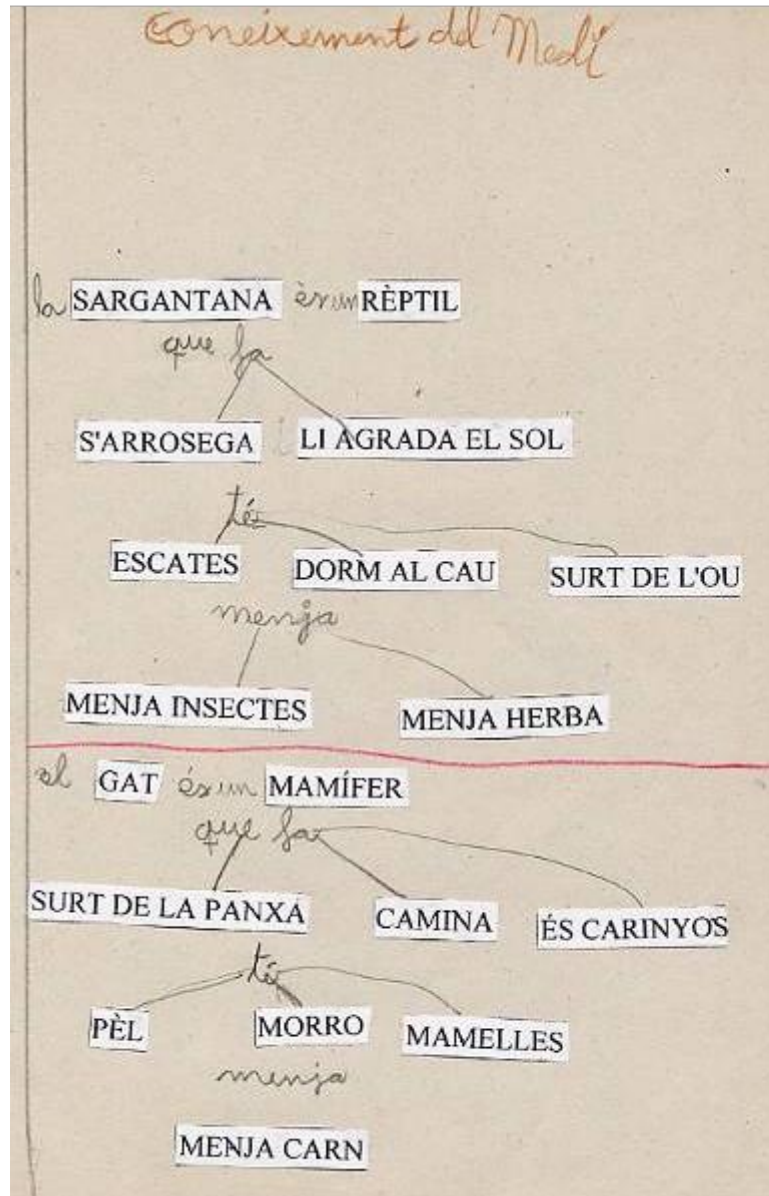 Coneixement del Medi
la SARGANTANA és un RÈPTIL
que fa
S'ARROSEGA LI AGRADA EL SOL
té
ESCATES DORM AL CAU SURT DE L'OU
menja
MENJA INSECTES MENJA HERBA
el GAT és un MAMÍFER
que fa
SURT DE LA PANXA CAMINA ÉS CARINYOS
té
PÈL MORRO MAMELLES
menja
MENJA CARN